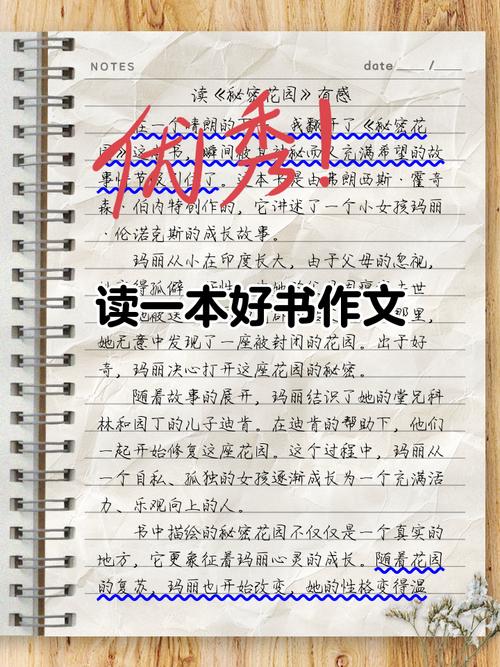 NOTES
date ____ / ____
读《秘密花园》有感
优秀!
我翻开了《秘密花
故
事情节吸引住了。本书是由弗朗西斯·霍奇
森·伯内特创作的,它讲述了一个小女孩玛丽
·伦诺克斯的成长故事。
玛丽从小在印度长大,由于父母的忽视,
读一本好书作文
那里,
她无意中发现了一座被封闭的花园。出于好
奇,玛丽决心打开这座花园的秘密。
随着故事的展开,玛丽结识了她的堂兄科
林和园丁的儿子迪肯。在迪肯的帮助下,他们
一起开始修复这座花园。这个过程中,玛丽从
一个自私、孤独的女孩逐渐成长为一个充满活
力、乐观向上的人。
书中描绘的秘密花园不仅仅是一个真实的
地方,它更象征着玛丽心灵的成长。随着花园
的复苏,玛丽也开始改变,她的性格变得温